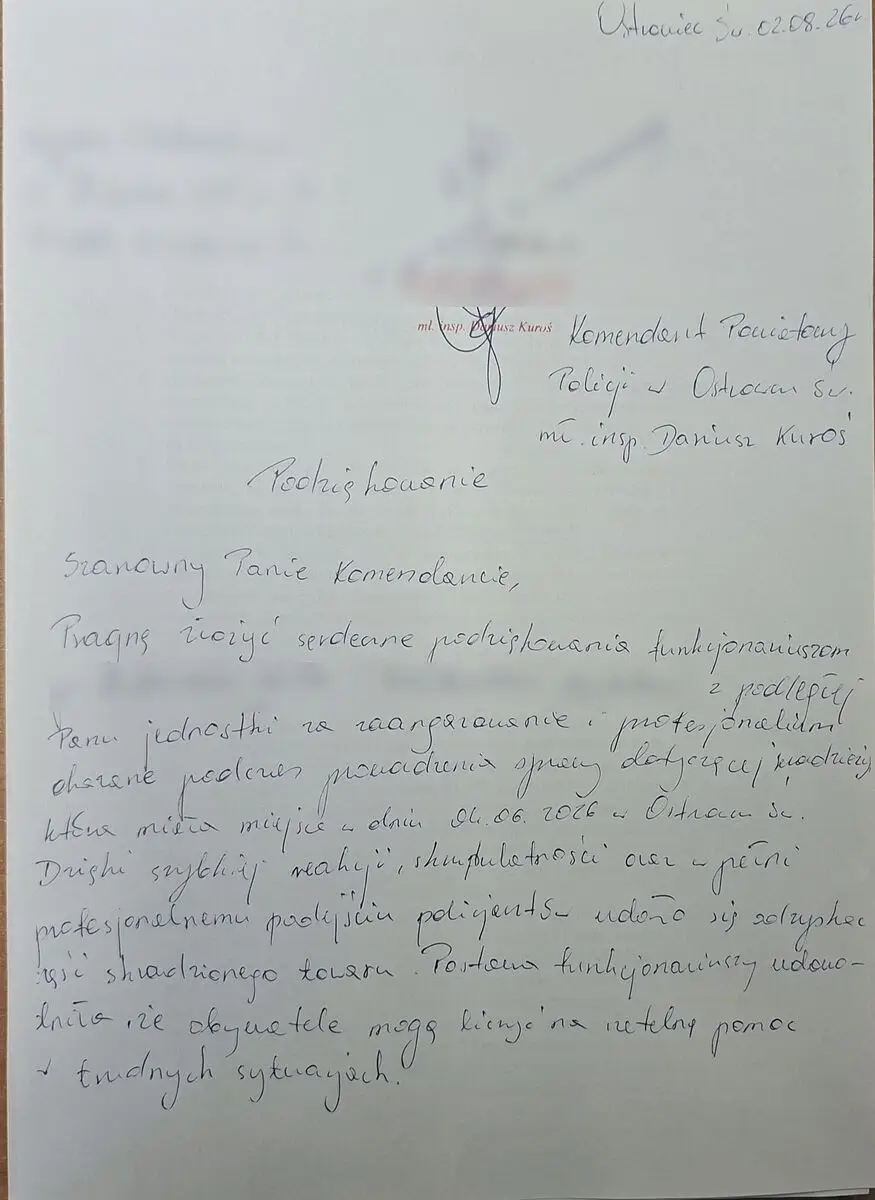 Ostrowiec Św. 02.08.26r
mł. insp. Dariusz Kuroś
Komendant Powiatowy
Policji w Ostrowcu Św.
mł. insp. Dariusz Kuroś
Podziękowanie
Szanowny Panie Komendancie,
Pragnę złożyć serdeczne podziękowania funkcjonariuszom
z podległej
Panu jednostki za zaangażowanie i profesjonalizm
okazane podczas prowadzenia sprawy dotyczącej kradzieży,
która miała miejsce w dniu 04.06.2026 w Ostrowcu Św.
Dzięki szybkiej reakcji, skrupulatności oraz w pełni
profesjonalnemu podejściu policjantów udało się odzyskać
część skradzionego towaru. Postawa funkcjonariuszy udowo-
dniła, że obywatele mogą liczyć na rzetelną pomoc
w trudnych sytuacjach.